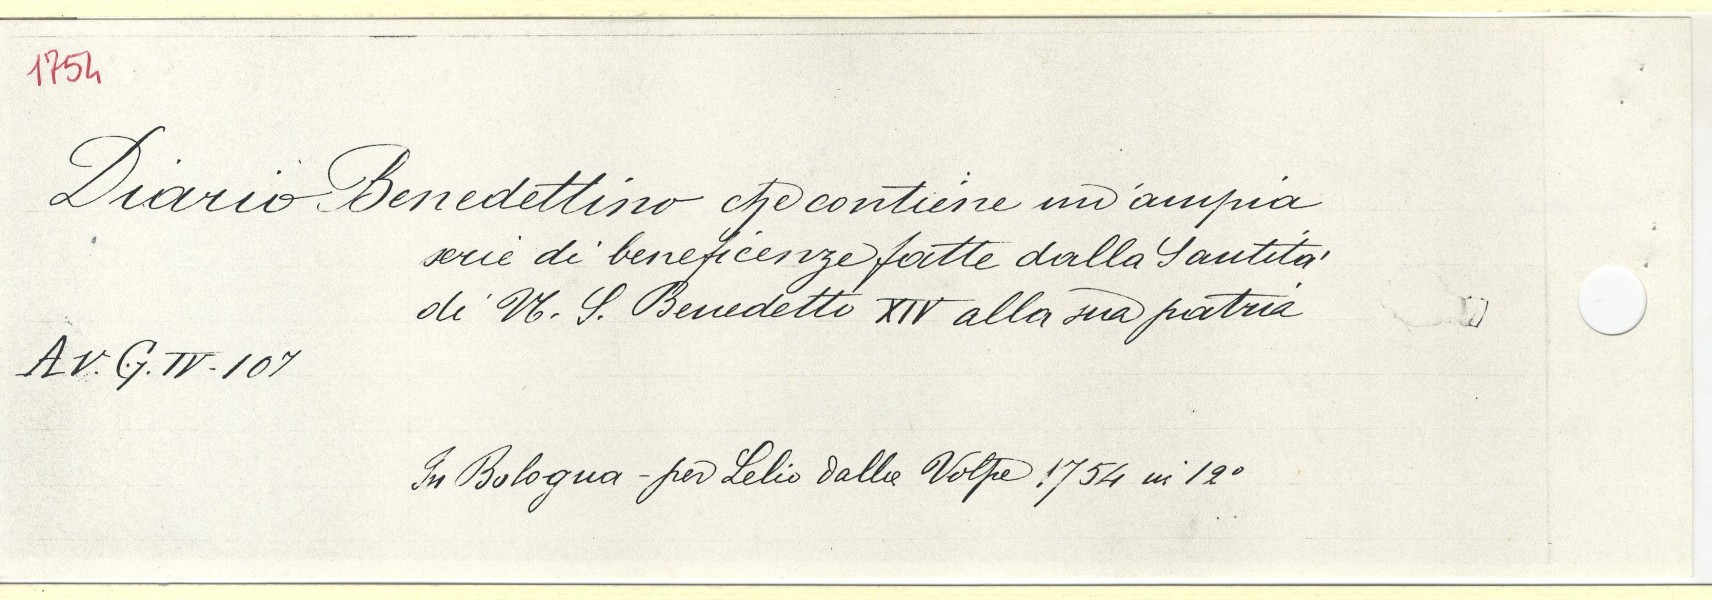 1754
Diario Benedettino che contiene un'ampia
serie di beneficenze fatte dalla Santità
di N. S. Benedetto XIV alla sua patria
A V. G. IV - 107
In Bologna - per Lelio dalla Volpe 1754 in 12º